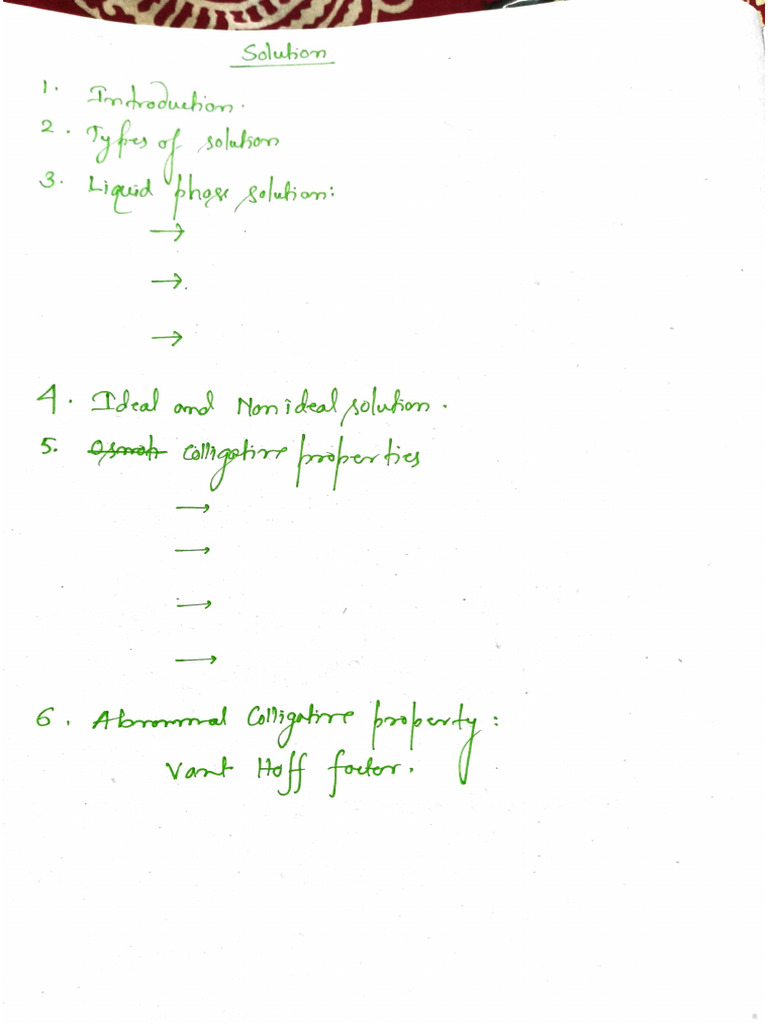 Solution
1. Introduction.
2. Types of solution
3. Liquid phase solution:
→
→
→
4. Ideal and Non ideal solution.
5. Osmot Colligative properties
→
→
→
→
6. Abnormal Colligative property:
Vant Hoff factor.